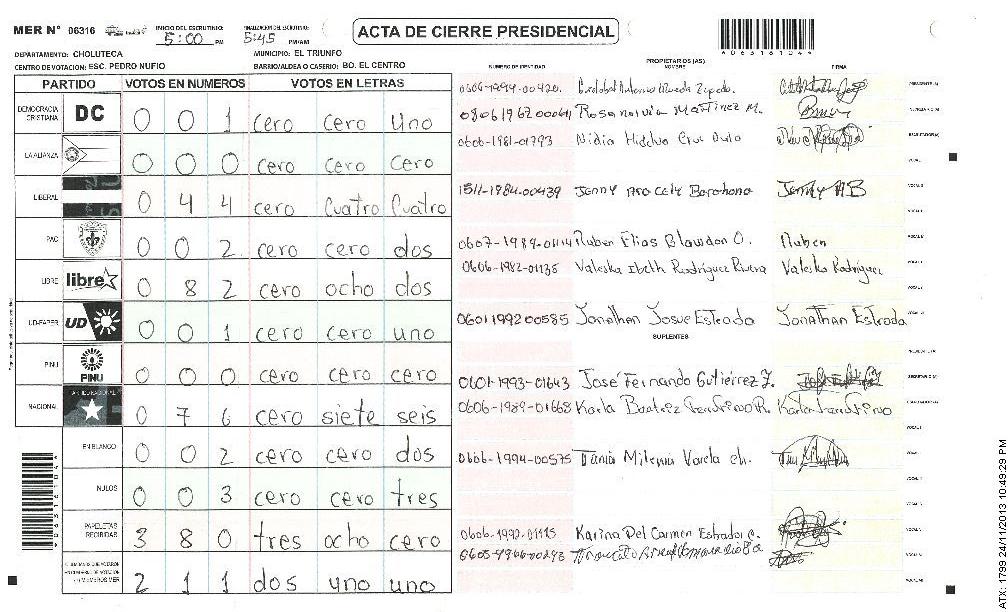 MER Nº 06316
INICIO DEL ESCRUTINIO: 5:00 PM
FINALIZACIÓN DEL ESCRUTINIO: 5:45 PM/AM
ACTA DE CIERRE PRESIDENCIAL
DEPARTAMENTO: CHOLUTECA
MUNICIPIO: EL TRIUNFO
CENTRO DE VOTACIÓN: ESC. PEDRO NUFIO
BARRIO/ALDEA O CASERIO: BO. EL CENTRO
PARTIDO VOTOS EN NUMEROS VOTOS EN LETRAS
DEMOCRACIA CRISTIANA DC 0 0 1 cero cero uno
LA ALIANZA 0 0 0 cero cero cero
LIBERAL 0 4 4 cero cuatro cuatro
PAC 0 0 2 cero cero dos
LIBRE libre 0 8 2 cero ocho dos
UD-FAPER UD 0 0 1 cero cero uno
PINU PINU 0 0 0 cero cero cero
NACIONAL 0 7 6 cero siete seis
EN BLANCO 0 0 2 cero cero dos
NULOS 0 0 3 cero cero tres
PAPELETAS RECIBIDAS 3 8 0 tres ocho cero
2 1 1 dos uno uno
PROPIETARIOS (AS)
NUMERO DE IDENTIDAD NOMBRE FIRMA
0606-1994-00420
Rosa Martinez M.
0606-1981-01793 Nidia
1511-1984-00439 Jenny Aracely Barahona Jenny AB
Ruben Elias Ruben
0606-1982-01135 Valeska Ibeth Rodríguez Rivera Valeska Rodríguez
0601199200585 Jonathan Josue Estrada Jonathan Estrada
SUPLENTES
0601-1993-01643 José Fernando Gutiérrez J.
0606-1989-01668 Karla Karla
0606-1994-00575 Tania Milenia Varela
0606-1992-01115 Karina Del Carmen Estrada
ATX: 1799 24/11/2013 10:49:29 PM